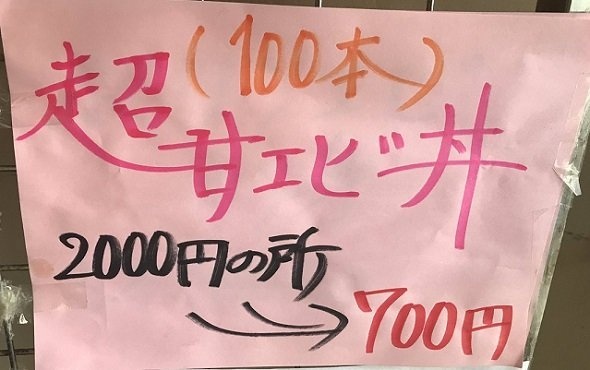 (100本)
超甘エビ丼
2000円の所
→700円